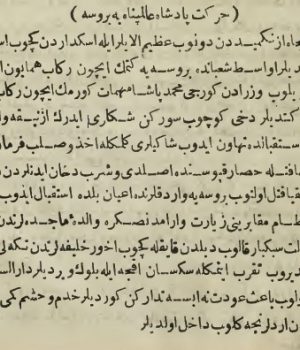 ( حركت پادشاه عالمپناه به بروسه )
از نكميددن دونوب عظيم الايلرايله اسكداردن كچوب
يدلر اواسط شعبانده بروسه يه كتمك ايچون ركاب همايون
بلوب وزرادن كورجى محمد پاشا مهمات كورمك ايچون
كتديلر دخى كوچوب سوركن شكارى ايدرك ازنيقه
استقبالنده تهاون ايدوب شاكيلرى كلمكله اخذ وصلب
حصار قپوسنده اصلدى وشرب دخان ايدنلردن
قتل اولنوب روسه يه واردقلرنده اعيان بلده استقبال ايدوب
مقابرينى زيارت وارامدنصكره والدۀ ماجده لرندن
سبكبار قالوب ديلدن قايقله كچوب اخور خليفه لرندن
يروب تقرب ايتمكله سكسان اقچه ايله بلوك ويرديلر
اولوب باعث عودت نه ايسه تداركن كورديلر خدم وحشم
اردلرنجه كلوب داخل اولديلر